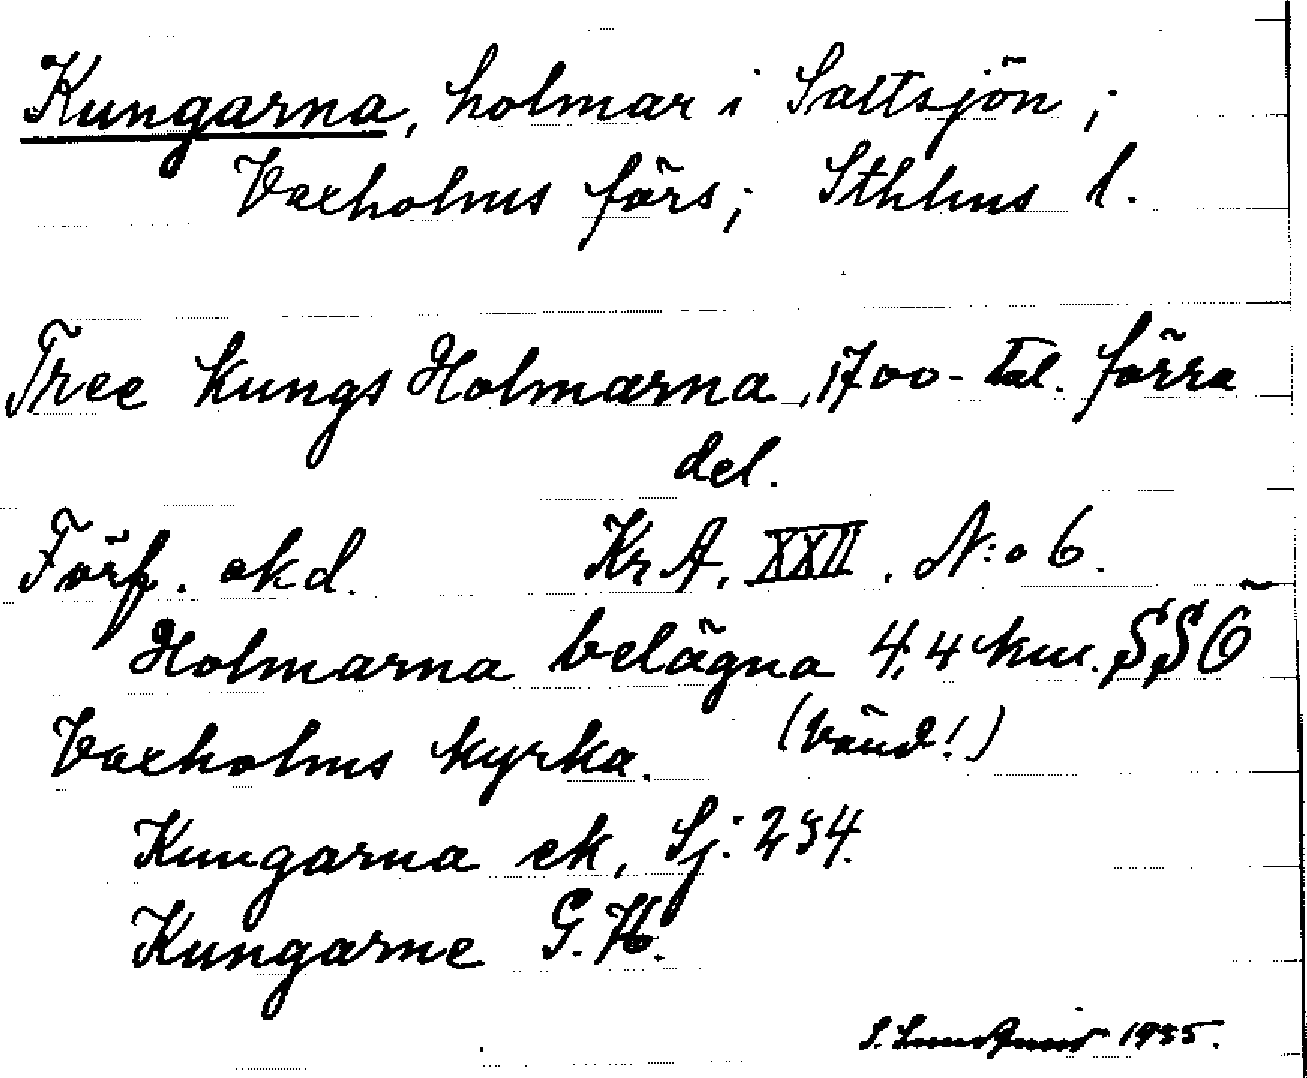 Kungarna, holmar i Saltsjön;
Vaxholms förs; Sthlms l.
Tree Kungs Holmarna, 1700-tal. förra
del.
Förf. okd. Kr A, XXII. N:o 6.
Holmarna belägna 4,4 km. SSÖ
Vaxholms kyrka. (Vänd!)
Kungarna ek, Sj: 234.
Kungarne G. K.
S. Lundquist 1935.